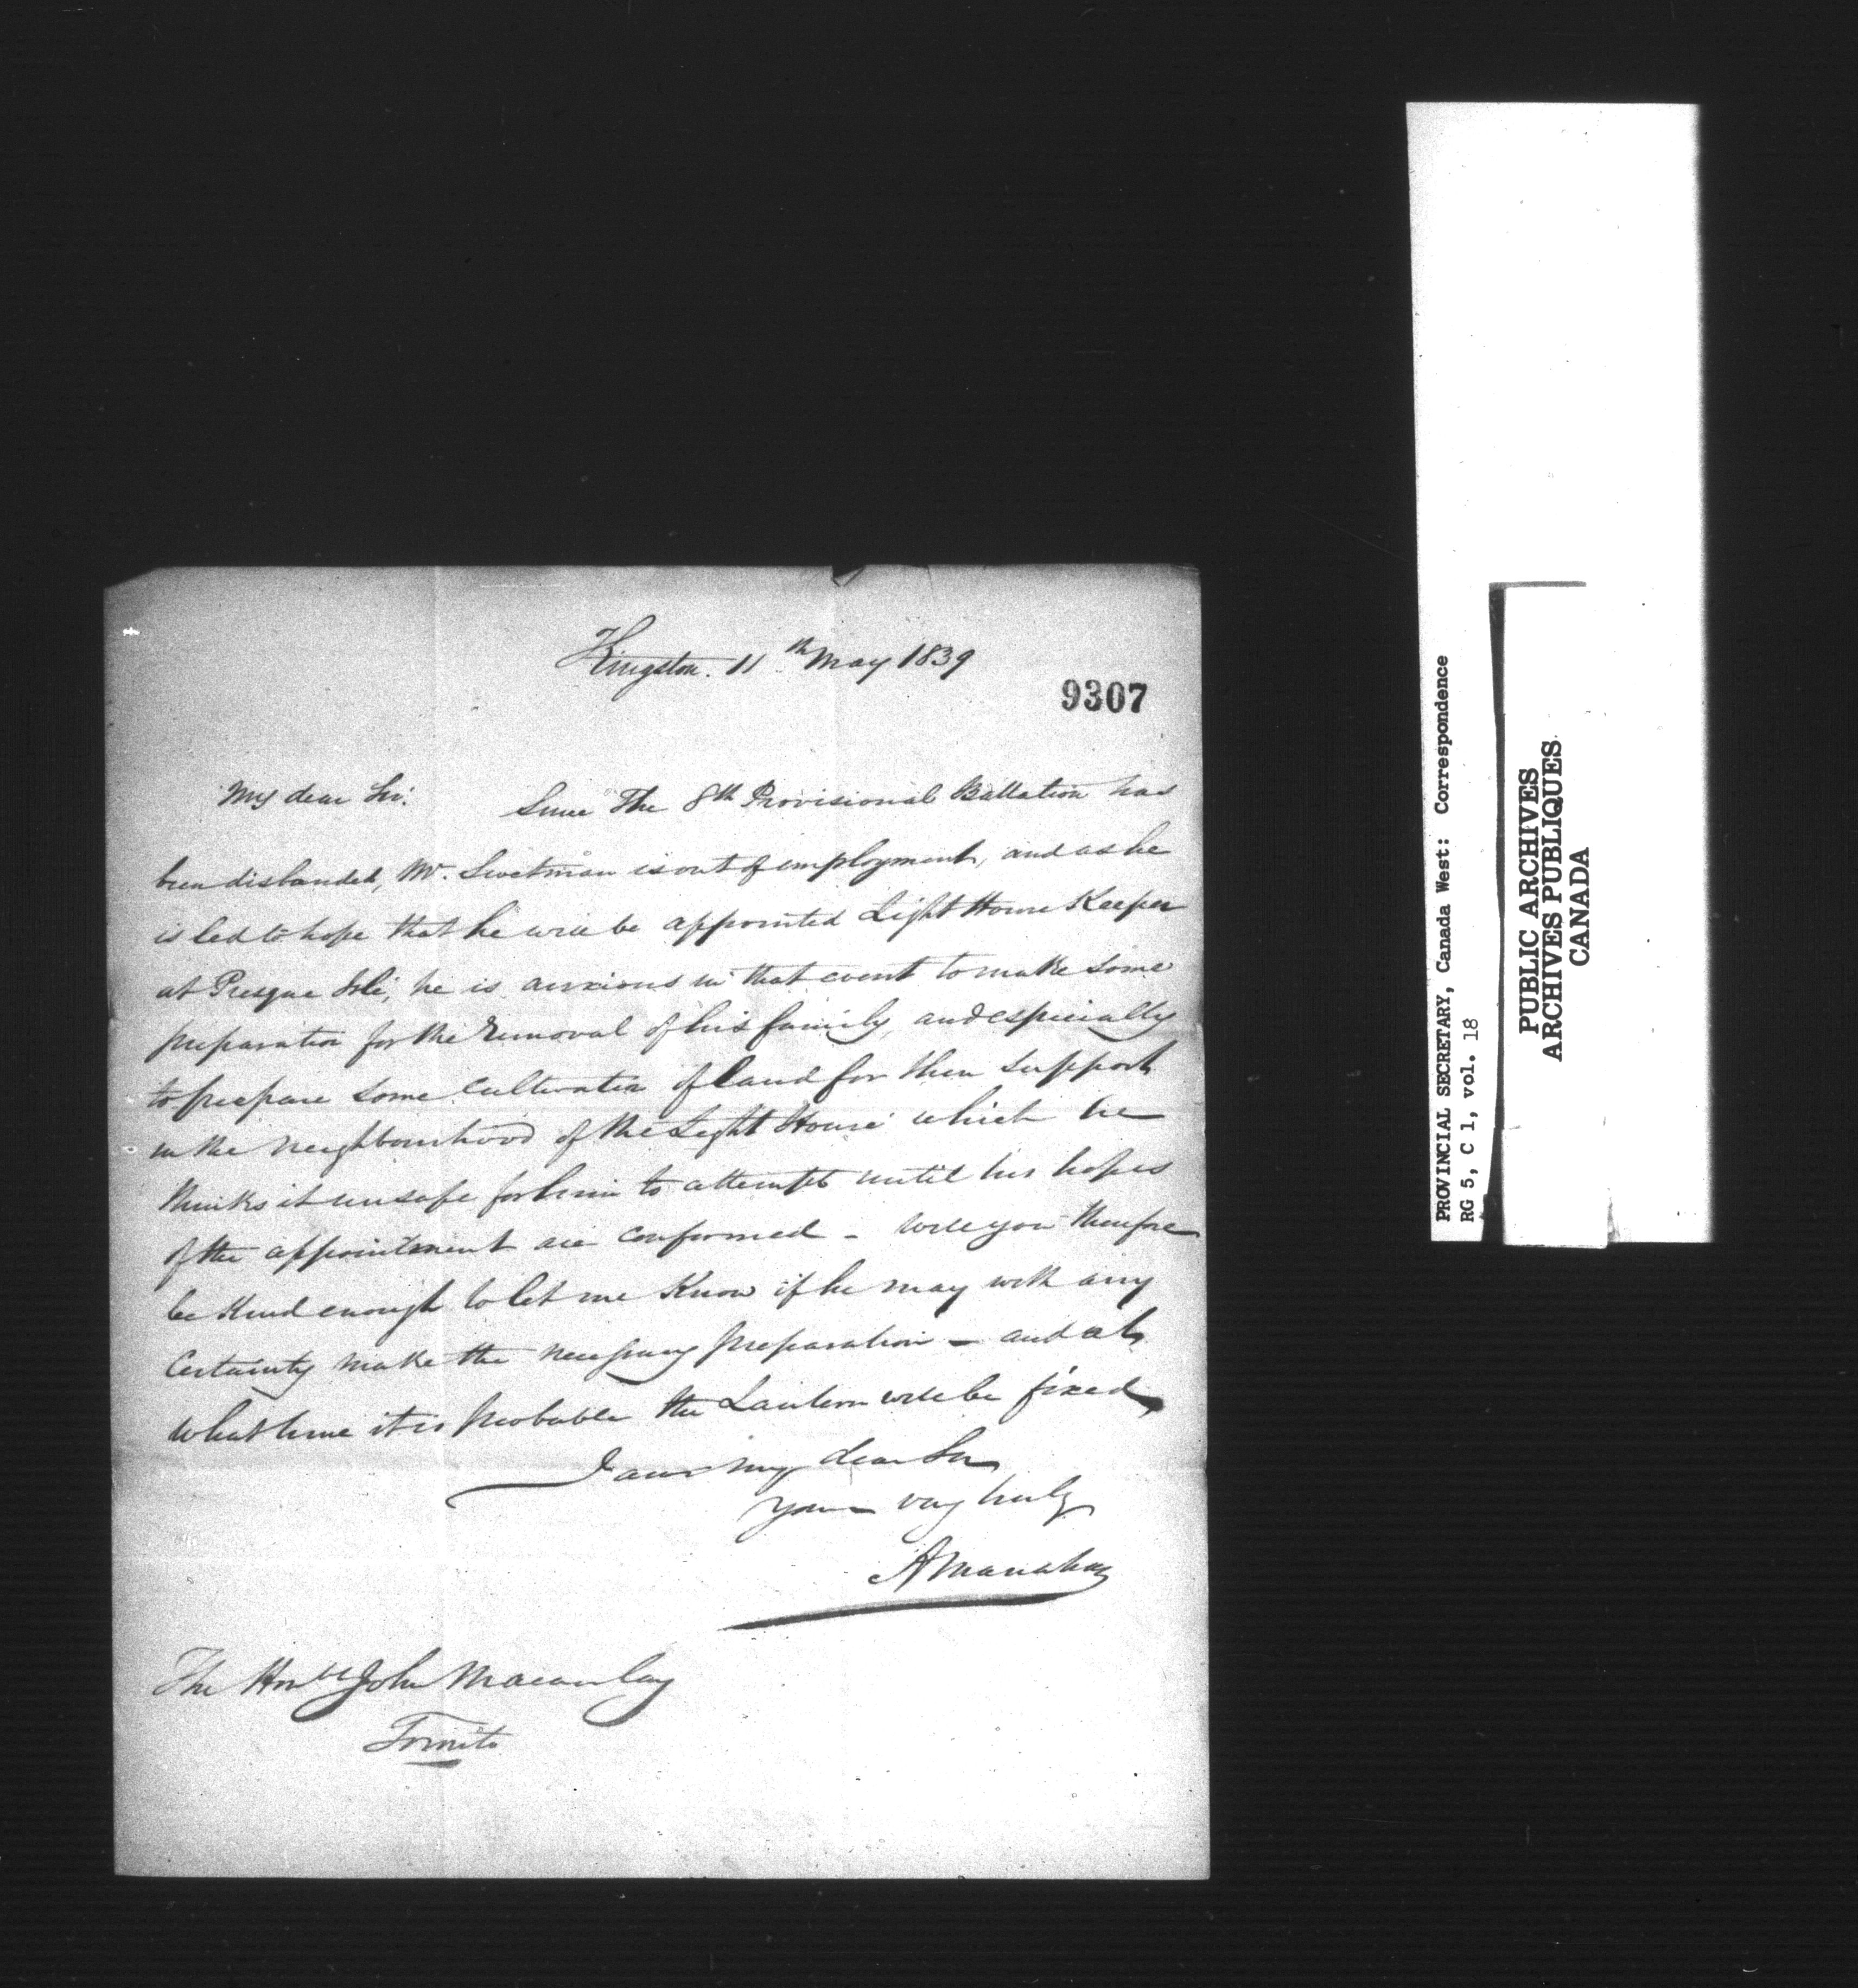 Kingston. 11th May 1839
9307
My dear Sir. Since The 8th Provisional Battalion has
been disbanded, Mr. Swetman is out of employment, and as he
is led to hope that he will be appointed Light House Keeper
at Presque Isle, he is anxious in that event to make some
preparation for the removal of his family, and especially
to prepare some cultivation of land for their support
in the neighbourhood of the Light House which he
thinks it unsafe for him to attempt until his hopes
of the appointment are confirmed - Will you therefore
be kind enough to let me Know if he may with any
Certainty make the necessary preparation - and at
what time it is probable the Lantern will be fixed,
I am my dear Sir
Yours very truly
A Manahan
The Honble John Macaulay
Toronto
PROVINCIAL SECRETARY, Canada West: Correspondence
RG 5, C 1, vol. 18
PUBLIC ARCHIVES
ARCHIVES PUBLIQUES
CANADA